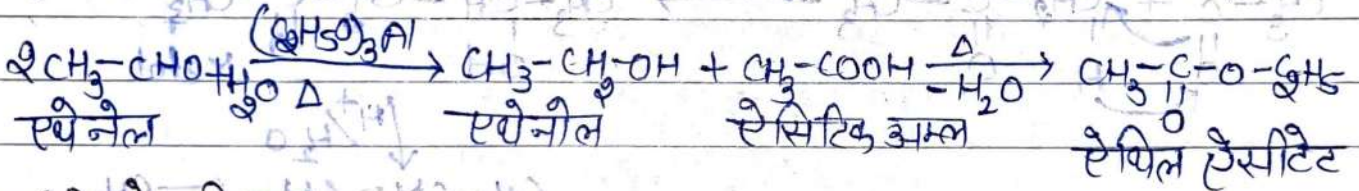 2CH₃-CHO+H₂O (C₂H5O)₃Al / Δ → CH₃-CH₂-OH + CH₃-COOH Δ / -H₂O → CH₃-C(=O)-O-C₂H5
एथेनेल एथेनोल ऐसिटिक अम्ल ऐथिल ऐसीटेट